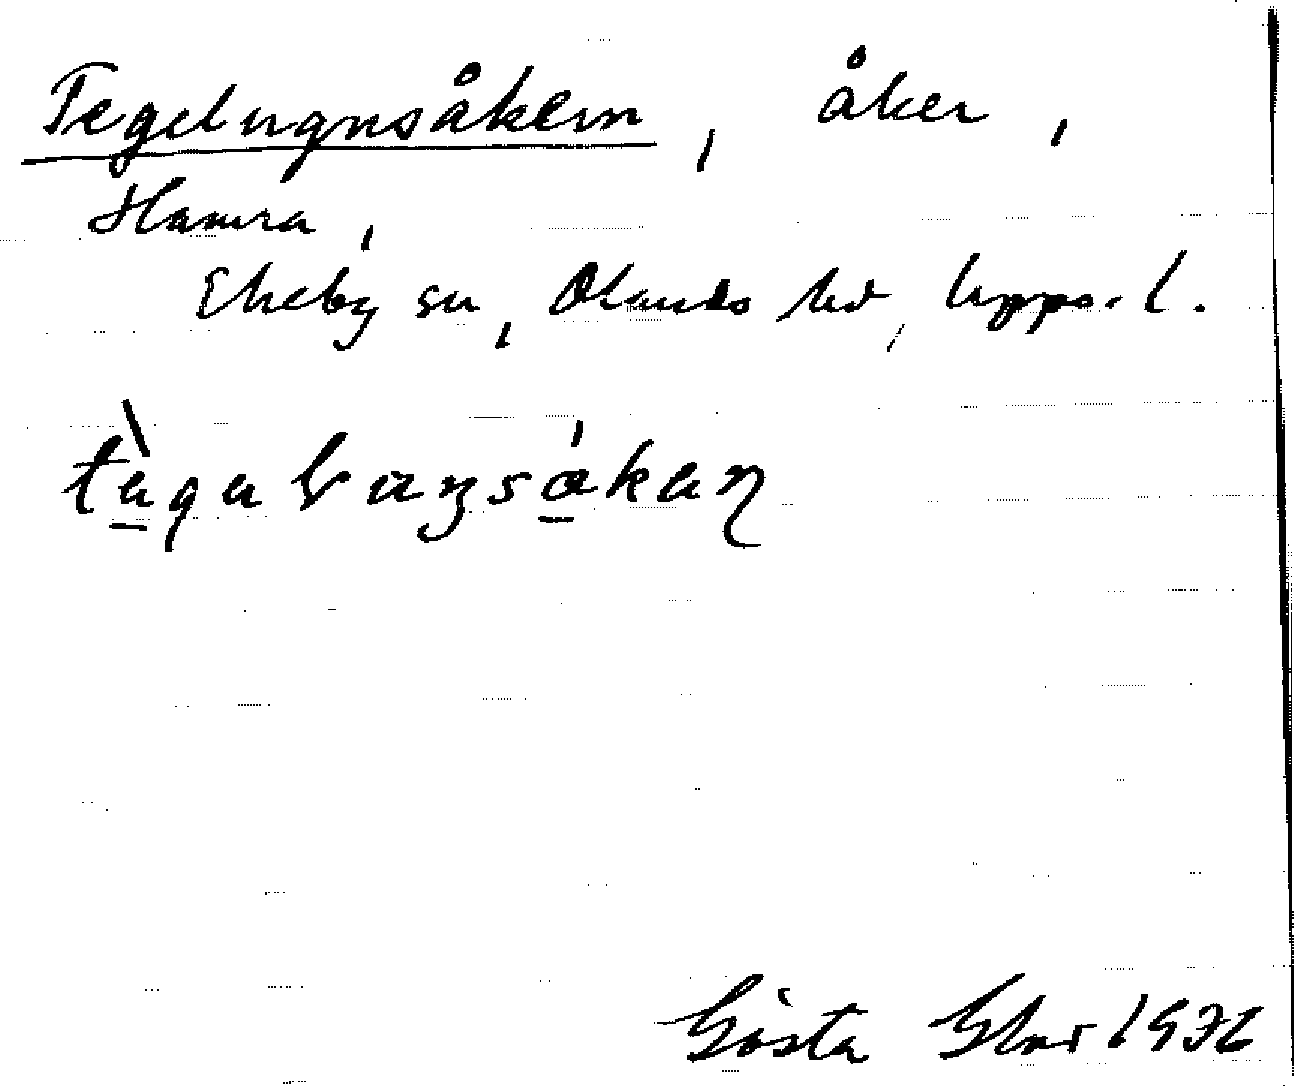 Tegelugnsåkern, åker,
Hamra,
Ekeby sn, Olands hd, Upps. l.
Gösta 1936